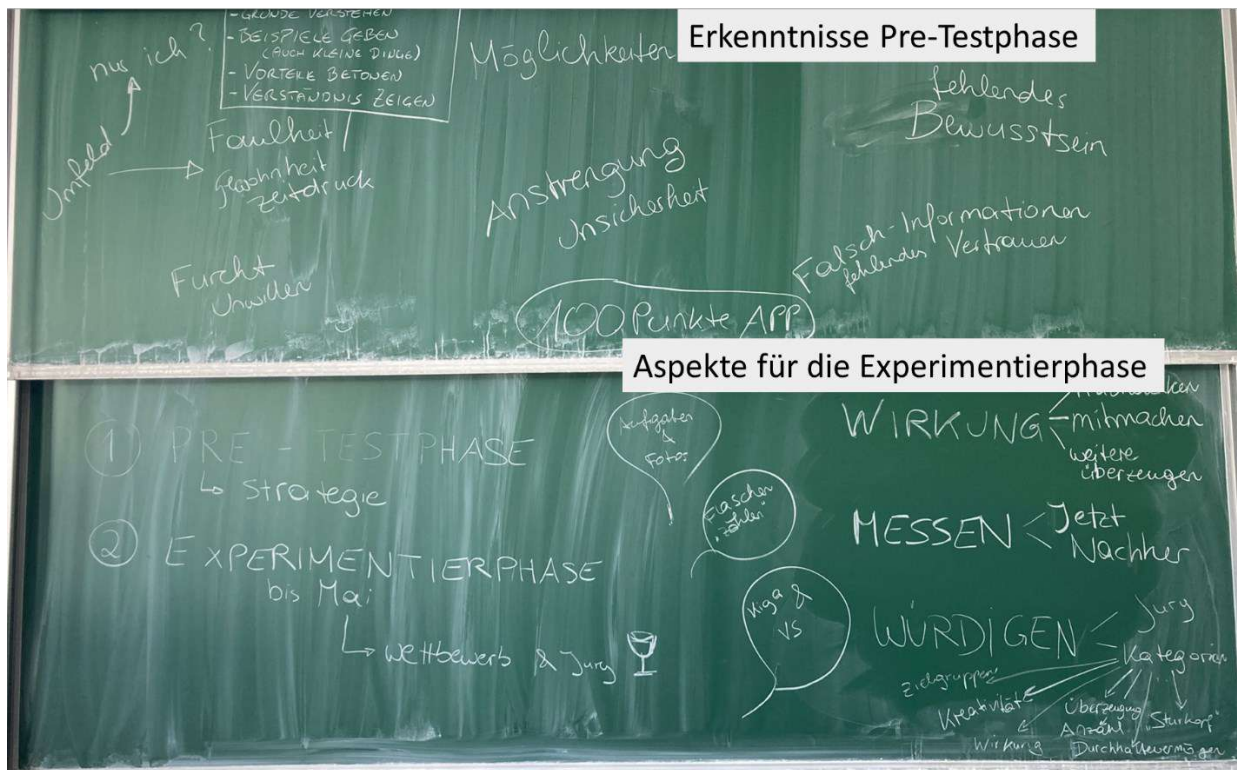 Erkenntnisse Pre-Testphase
- GRÜNDE VERSTEHEN
- BEISPIELE GEBEN
(AUCH KLEINE DINGE)
- VORTEILE BETONEN
- VERSTÄNDNIS ZEIGEN
nur ich?
Umfeld
Faulheit
Gewohnheit
Zeitdruck
Furcht
Unwillen
Möglichkeiten
Anstrengung
Unsicherheit
fehlendes
Bewusstsein
Falsch-Informationen
fehlendes Vertrauen
100 Punkte APP
Aspekte für die Experimentierphase
1 PRE-TESTPHASE
Strategie
2 EXPERIMENTIERPHASE
bis Mai
Wettbewerb & Jury
Aufgaben
&
Fotos
Flaschen
"zählen"
Kiga &
VS
WIRKUNG
mitmachen
weitere
überzeugen
MESSEN
Jetzt
Nachher
WÜRDIGEN
Jury
Kategorien
Zielgruppen
Kreativität
Wirkung
Überzeugung
Anzahl
"Sturkopf"
Durchhaltevermögen